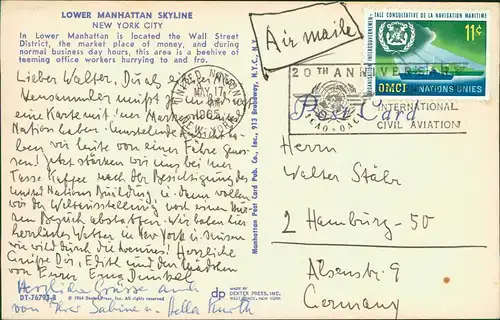 LOWER MANHATTAN SKYLINE
NEW YORK CITY
In Lower Manhattan is located the Wall Street
District, the market place of money, and during
normal business day hours, this area is a beehive of
teeming office workers hurrying to and fro.
Lieber Walter, Du als
Versammler mußt
eine Karte mit der Marke
Nation haben. Umstehende
ben wir heute von einer Fähre aus
sen. Jetzt stärken wir uns bei einer
Tasse Kaffee nach der Besichtigung des
United Nations Building in dann wollen
wir der Weltausstellung noch einen kur
zen Besuch abstatten. Wir haben hier
herrliches Wetter in New York
Herzliche
Grüße Dir, Edith und den Mädchen
von Eurer Erna Dunkel
Herzliche Grüsse auch
von Ihrer Sabine u. Hella
DT-76793-B © 1964 Dexter Press, Inc. All rights reserved
Manhattan Post Card Pub. Co., Inc., 913 Broadway, N.Y.C., N.Y.
dp
MADE BY
DEXTER PRESS, INC.
WEST NYACK, NEW YORK
Air maile
UNITED NATIONS
MAY 17
1965
NEW YORK
20TH ANNIVERSARY
ICAO-OACI
INTERNATIONAL
CIVIL AVIATION
Post Card
TALE CONSULTATIVE DE LA NAVIGATION MARITIME
ORGANISATION INTERGOUVERNEMEN
11¢
OMCI NATIONS UNIES
Herrn
Walter Stähr
2 Hamburg-50
Alsenstr. 9
Germany